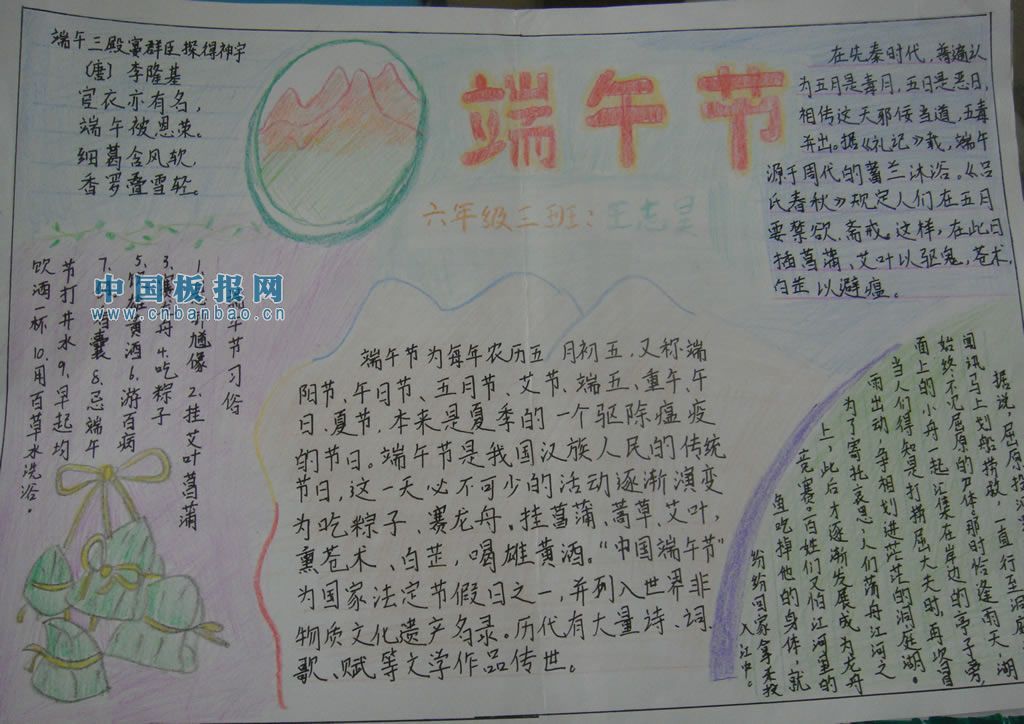 端午三殿宴群臣探得神字
(唐) 李隆基
宫衣亦有名，
端午被恩荣。
细葛含风软，
香罗叠雪轻。
端午节
六年级三班：王志昊
在先秦时代，普遍认
为五月是毒月，五日是恶日，
相传这天邪佞当道，五毒
并出。据《礼记》载，端午
源于周代的蓄兰沐浴。《吕
氏春秋》规定人们在五月
要禁欲、斋戒。这样，在此日
插菖蒲、艾叶以驱鬼，苍术，
白芷以避瘟。
中国板报网
www.cnbanbao.cn
端午节习俗
馗像 2.挂艾叶菖蒲
3.赛龙舟 4.吃粽子
5.饮雄黄酒 6.游百病
7.香囊 8.忌端午
节打井水 9.早起均
饮酒一杯 10.用百草水洗浴。
端午节为每年农历五月初五，又称端
阳节、午日节、五月节、艾节、端五、重午、午
日、夏节，本来是夏季的一个驱除瘟疫
的节日。端午节是我国汉族人民的传统
节日，这一天必不可少的活动逐渐演变
为吃粽子、赛龙舟、挂菖蒲、蒿草、艾叶，
熏苍术、白芷，喝雄黄酒。“中国端午节”
为国家法定节假日之一，并列入世界非
物质文化遗产名录。历代有大量诗、词、
歌、赋等文学作品传世。
据说，屈原投
闻讯马上划船捞救，一直行至洞庭湖
始终不见屈原的尸体。那时恰逢雨天，湖
面上的小舟一起汇集在岸边的亭子旁，
当人们得知是打捞屈大夫时，再次冒
雨出动，争相划进茫茫的洞庭湖。
为了寄托哀思，人们荡舟江河之
上，此后才逐渐发展成为龙舟
竞赛。百姓们又怕江河里的
鱼吃掉他的身体，就
纷纷回家拿来米
入江中。